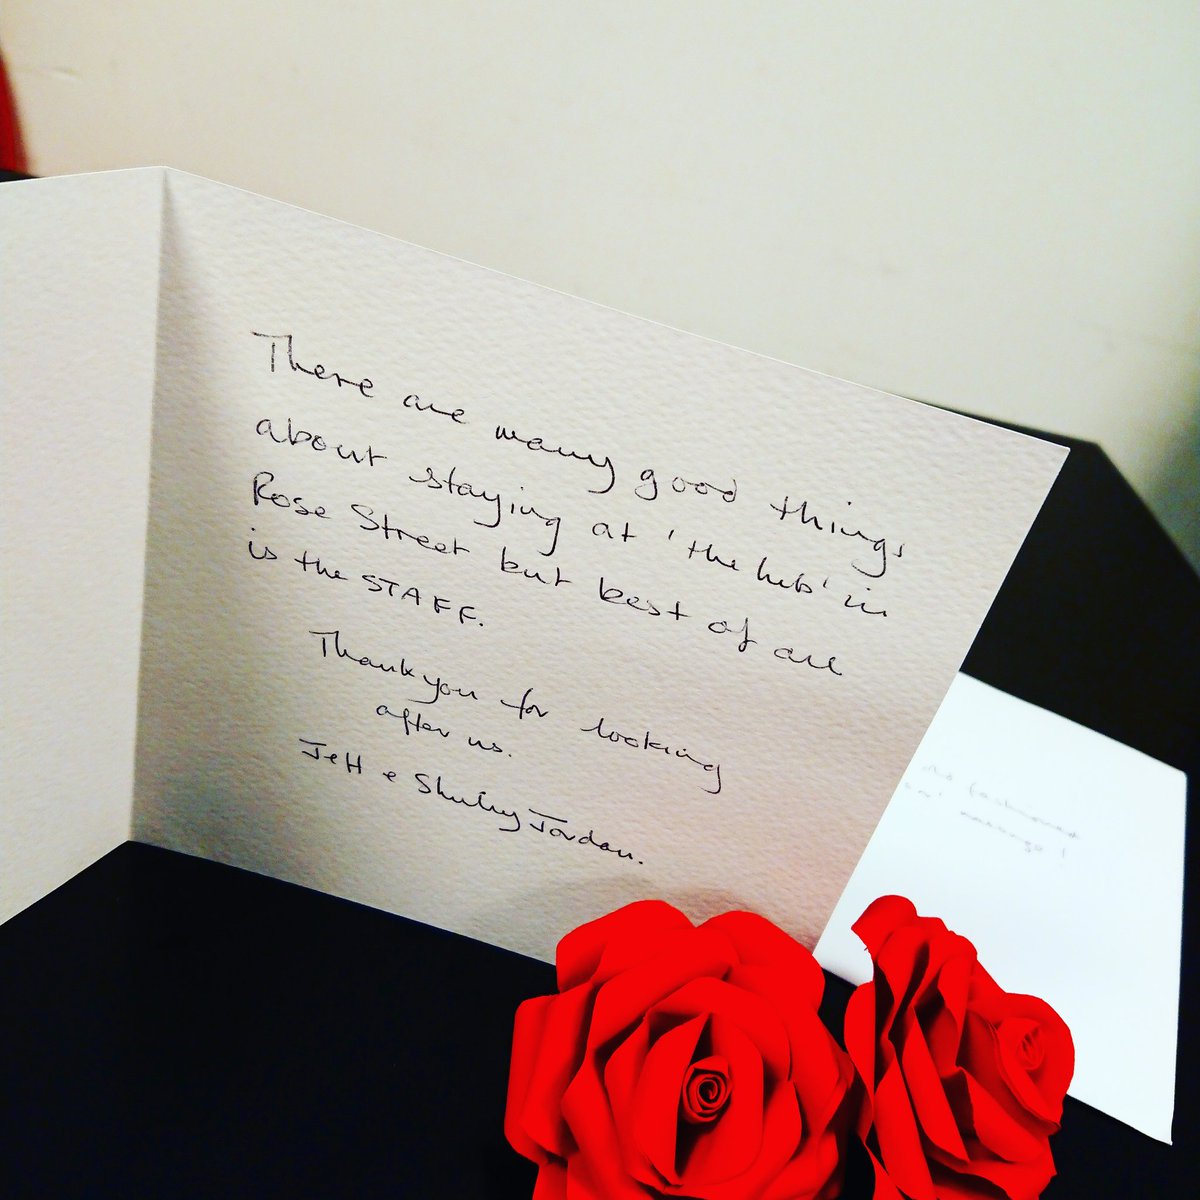 There are many good things
about staying at 'the hub' in
Rose Street but best of all
is the STAFF.
Thank you for looking
after us.
Jeff & Shirley Jordan.
fashioned
message!